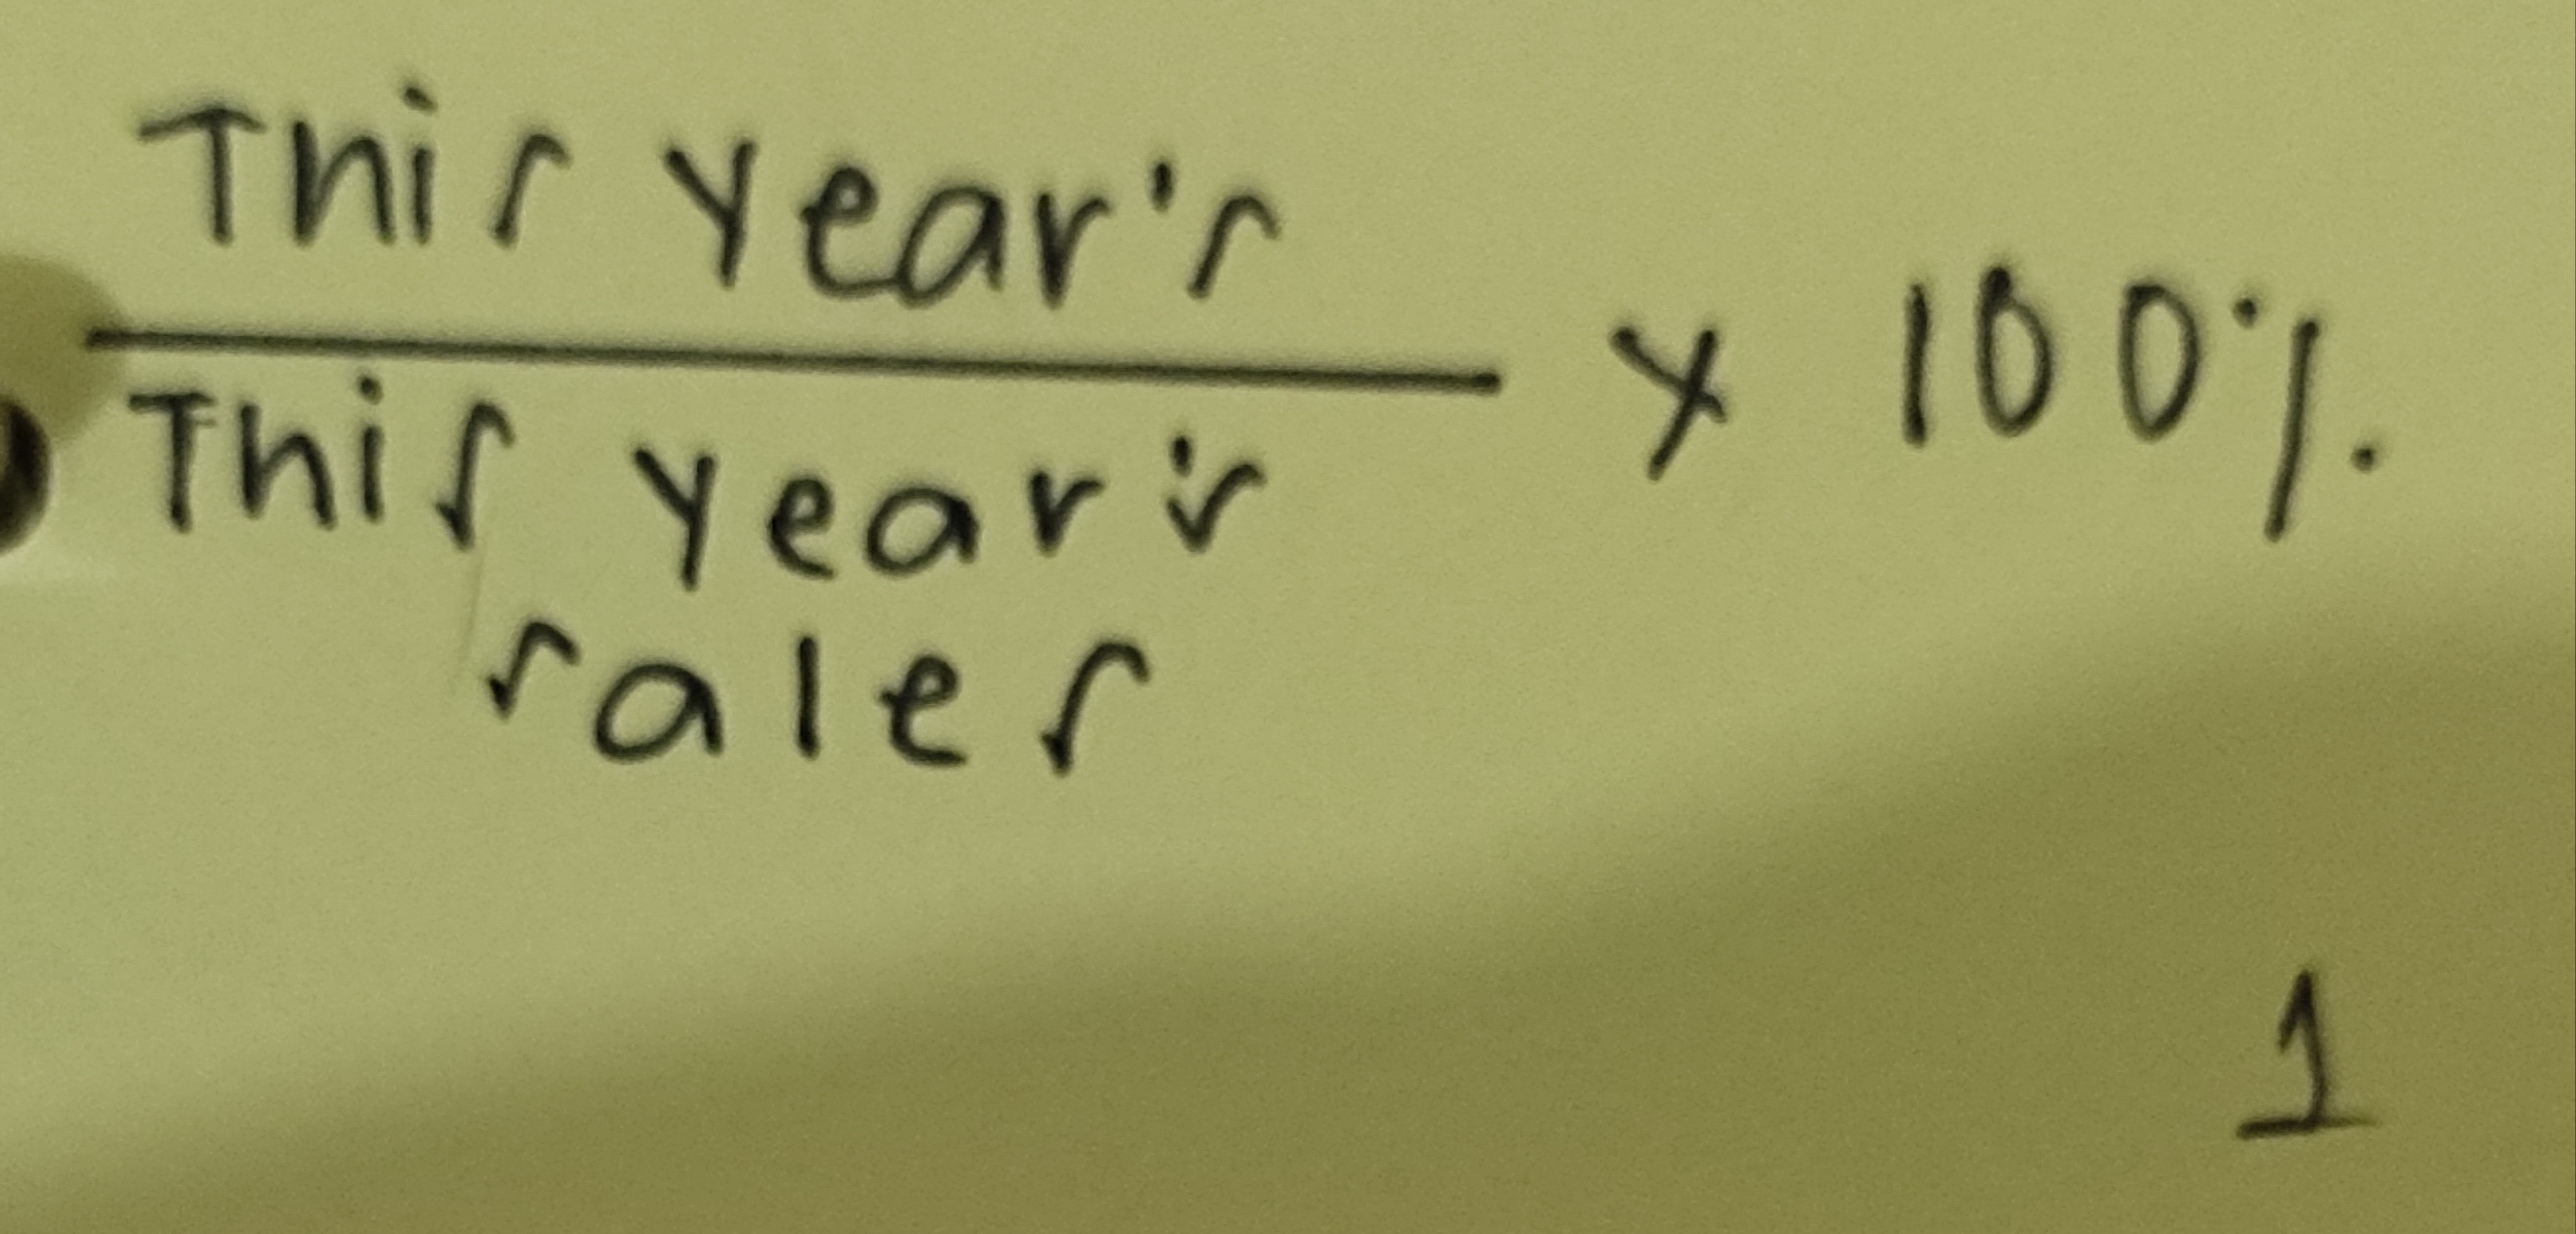 This year's
This year's
sales
x 100%
1